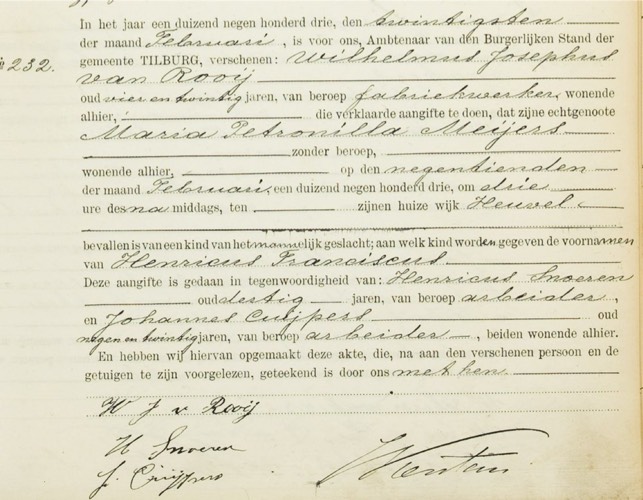 In het jaar een duizend negen honderd drie, den twintigsten
der maand Februari, is voor ons, Ambtenaar van den Burgerlijken Stand der
No 232. gemeente TILBURG, verschenen: Wilhelmus Josephus
van Rooij
oud vier en twintig jaren, van beroep fabriekwerker, wonende
alhier, die verklaarde aangifte te doen, dat zijne echtgenoote
Maria Petronilla Meijers
zonder beroep,
wonende alhier, op den negentienden
der maand Februari, een duizend negen honderd drie, om drie
ure des na middags, ten zijnen huize wijk Heuvel
bevallen is van een kind van het mannelijk geslacht; aan welk kind worden gegeven de voornamen
van Henricus Franciscus
Deze aangifte is gedaan in tegenwoordigheid van: Henricus Snoeren
oud dertig jaren, van beroep arbeider,
en Johannes Cuijpers oud
negen en twintig jaren, van beroep arbeider, beiden wonende alhier.
En hebben wij hiervan opgemaakt deze akte, die, na aan den verschenen persoon en de
getuigen te zijn voorgelezen, geteekend is door ons met hen.
W J v Rooij
H Snoeren
J. Cuijpers